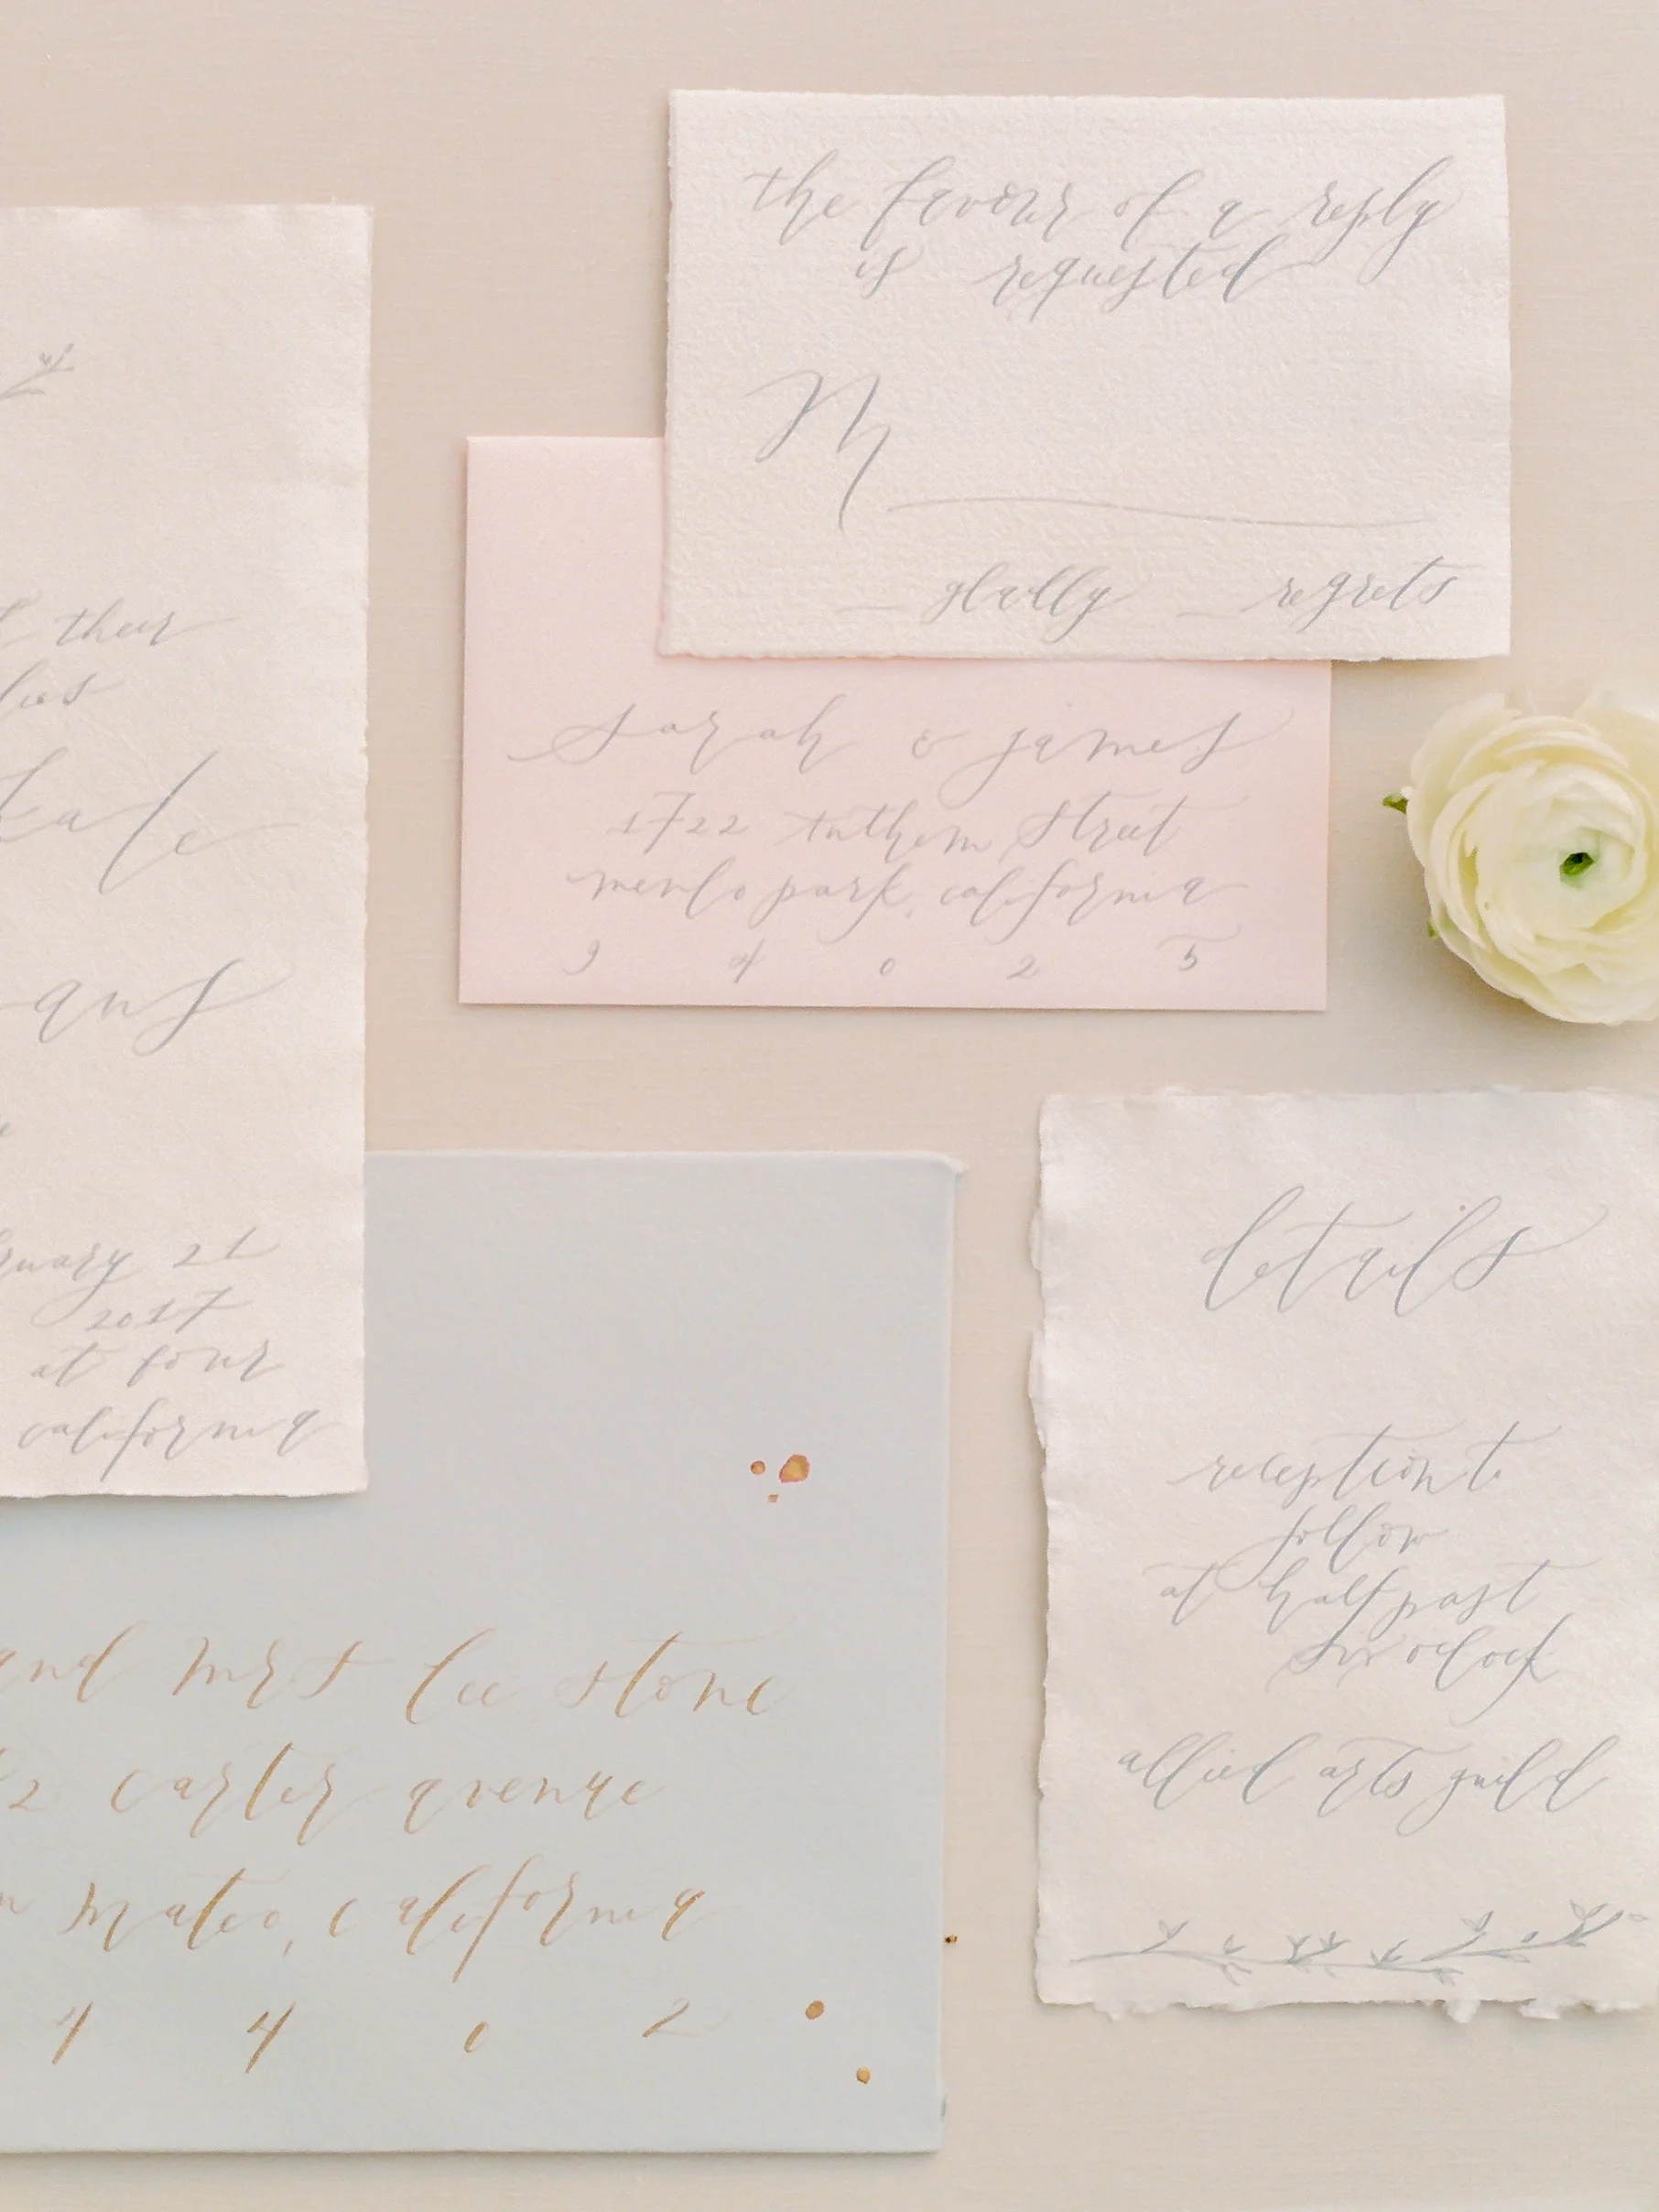 the favour of a reply
is requested
M
gladly regrets
sarah & james
1722 anthem street
menlo park, california
9 4 0 2 5
their
ans
21
2017
at four
california
details
reception to
follow
at half past
six o'clock
allied arts guild
and mrs lee stone
2 carter avenue
mateo, california
4 0 2